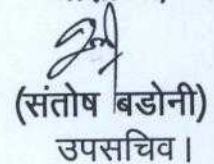 (संतोष बडोनी)
उपसचिव।